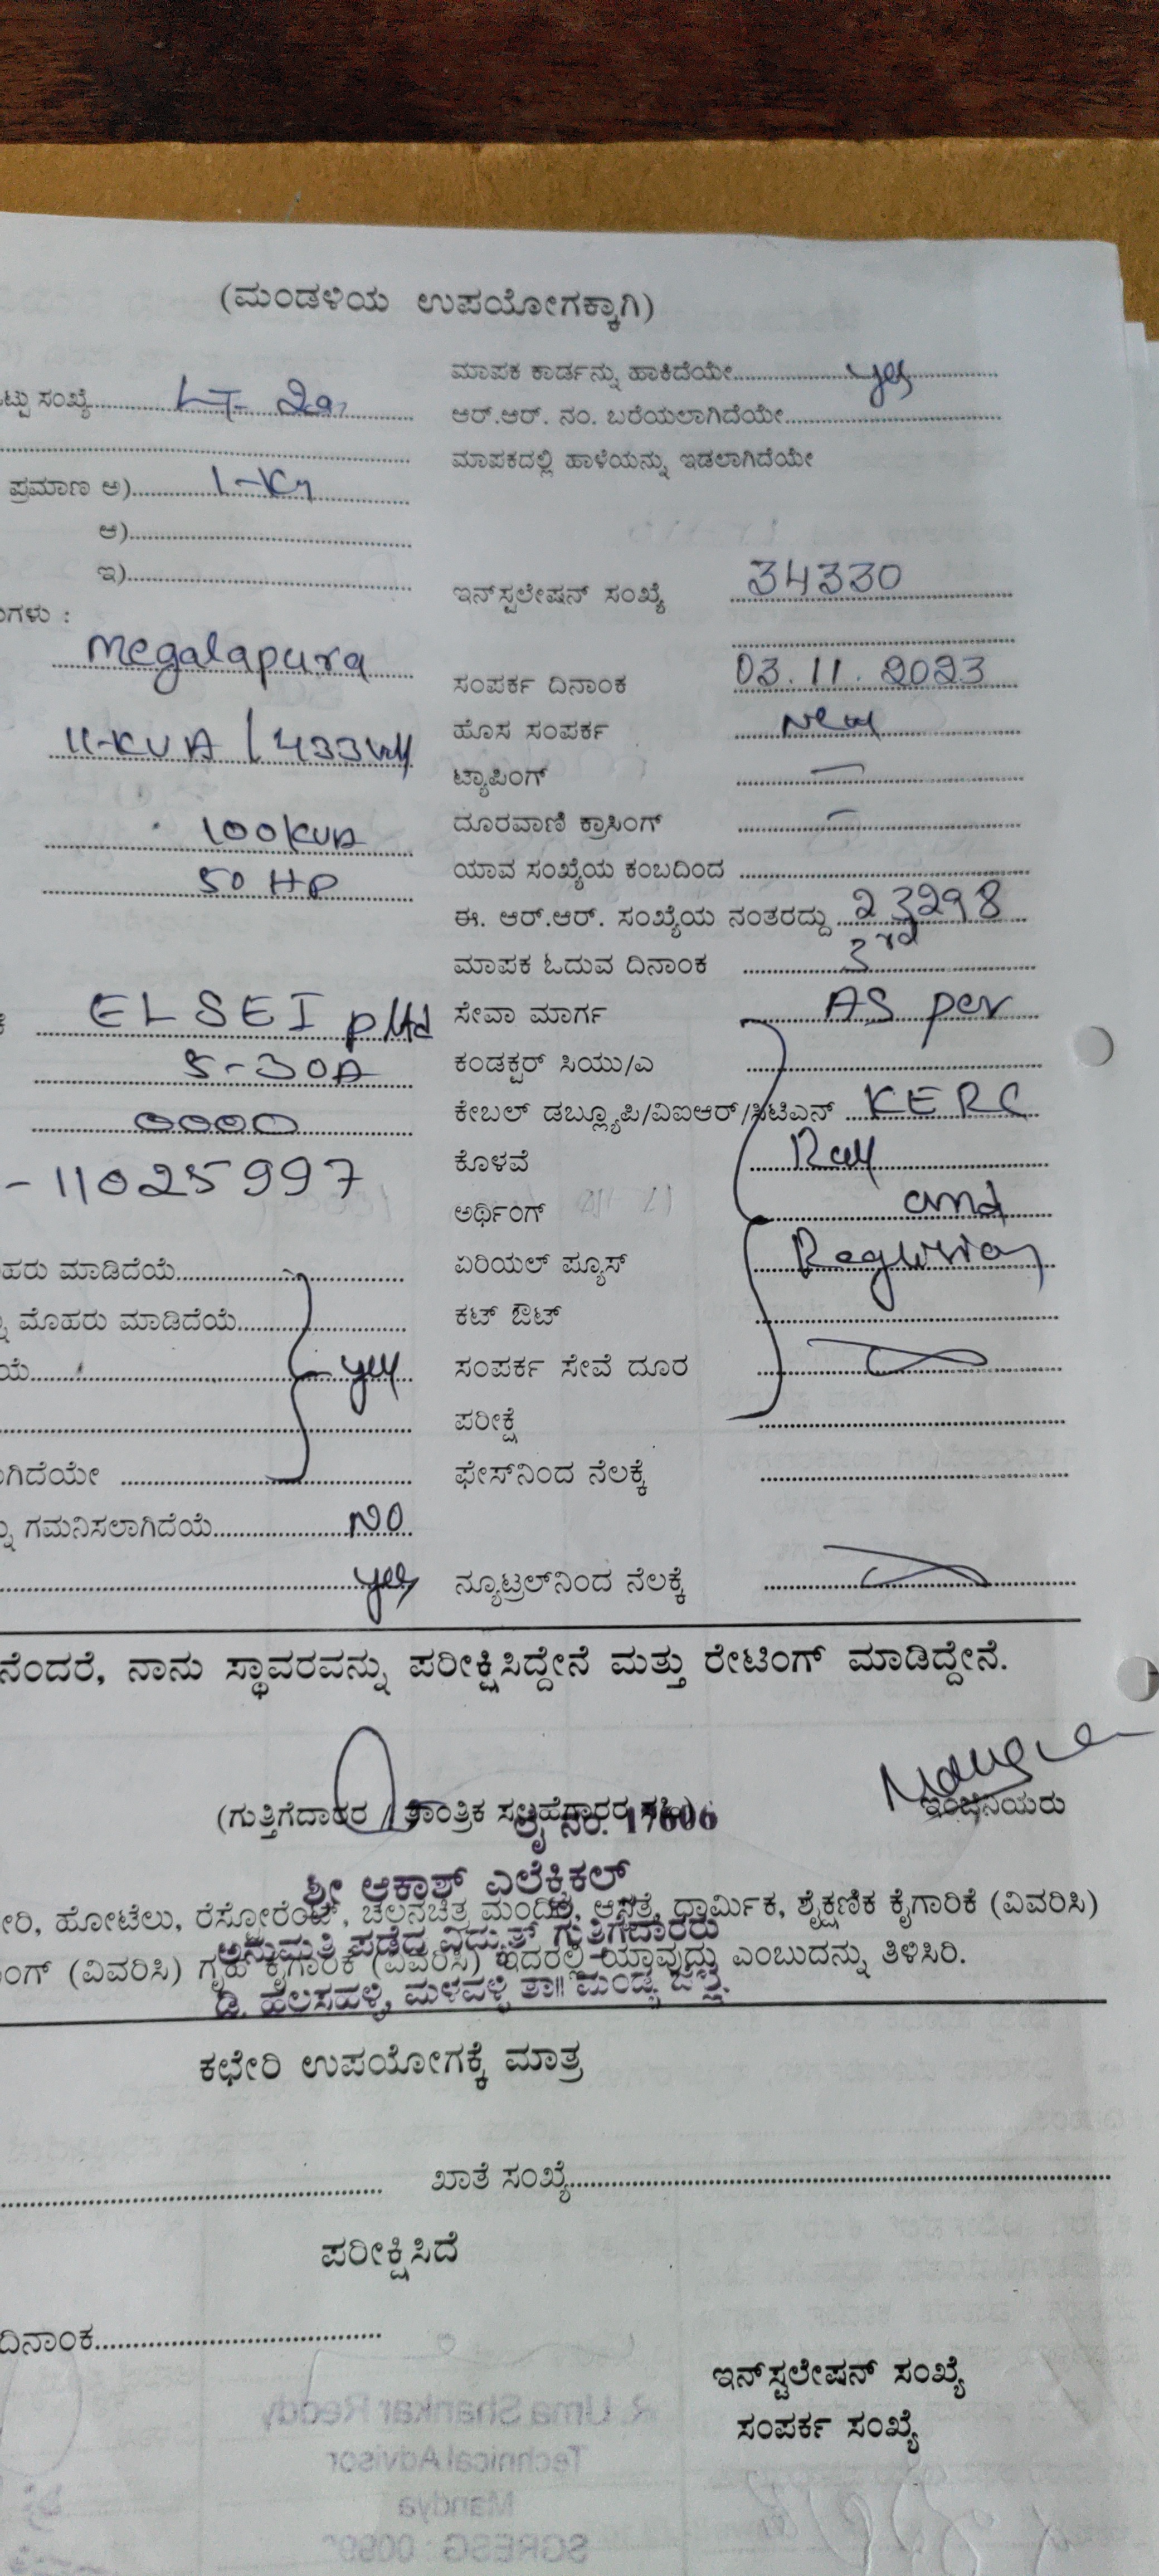 (ಮಂಡಳಿಯ ಉಪಯೋಗಕ್ಕಾಗಿ)
ಟ್ಟು ಸಂಖ್ಯೆ LT-2a
ಪ್ರಮಾಣ ಅ)
ಆ)
ಇ)
ಗಳು :
Megalapura
11-KVA / 433
100KVA
50 HP
ELSEI pltd
5-30A
0000
- 11025997
ಹರು ಮಾಡಿದೆಯೆ
ಮೊಹರು ಮಾಡಿದೆಯೆ
ಯೆ yes
ಗಿದೆಯೇ
ಗಮನಿಸಲಾಗಿದೆಯೆ NO
yes
ಮಾಪಕ ಕಾರ್ಡನ್ನು ಹಾಕಿದೆಯೇ yes
ಆರ್.ಆರ್. ನಂ. ಬರೆಯಲಾಗಿದೆಯೇ
ಮಾಪಕದಲ್ಲಿ ಹಾಳೆಯನ್ನು ಇಡಲಾಗಿದೆಯೇ
ಇನ್‌ಸ್ಟಲೇಷನ್ ಸಂಖ್ಯೆ 34330
ಸಂಪರ್ಕ ದಿನಾಂಕ 03.11.2023
ಹೊಸ ಸಂಪರ್ಕ New
ಟ್ಯಾಪಿಂಗ್ —
ದೂರವಾಣಿ ಕ್ರಾಸಿಂಗ್ —
ಯಾವ ಸಂಖ್ಯೆಯ ಕಂಬದಿಂದ
ಈ. ಆರ್.ಆರ್. ಸಂಖ್ಯೆಯ ನಂತರದ್ದು 23298
ಮಾಪಕ ಓದುವ ದಿನಾಂಕ 3rd
ಸೇವಾ ಮಾರ್ಗ AS per
ಕಂಡಕ್ಟರ್ ಸಿಯು/ಎ
ಕೇಬಲ್ ಡಬ್ಲ್ಯೂಪಿ/ವಿಐಆರ್/ಸಿಟಿಎನ್ KERC
ಕೊಳವೆ
ಅರ್ಥಿಂಗ್ and
ಏರಿಯಲ್ ಪ್ಯೂಸ್
ಕಟ್ ಔಟ್
ಸಂಪರ್ಕ ಸೇವೆ ದೂರ
ಪರೀಕ್ಷೆ
ಫೇಸ್‌ನಿಂದ ನೆಲಕ್ಕೆ
ನ್ಯೂಟ್ರಲ್‌ನಿಂದ ನೆಲಕ್ಕೆ
ನೆಂದರೆ, ನಾನು ಸ್ಥಾವರವನ್ನು ಪರೀಕ್ಷಿಸಿದ್ದೇನೆ ಮತ್ತು ರೇಟಿಂಗ್ ಮಾಡಿದ್ದೇನೆ.
(ಗುತ್ತಿಗೆದಾರರ / ತಾಂತ್ರಿಕ ಸಲಹೆಗಾರರ ಸಹಿ)
ಇಂಜಿನಿಯರು
17606
ಶ್ರೀ ಆಕಾಶ್ ಎಲೆಕ್ಟ್ರಿಕಲ್
ಅನುಮತಿ ಪಡೆದ ವಿದ್ಯುತ್ ಗುತಿಗೆದಾರರು
ಡಿ. ಹಲಸಹಳ್ಳಿ, ಮಳವಳ್ಳಿ ತಾ॥ ಮಂಡ್ಯ ಜಿಲ್ಲೆ.
ೇರಿ, ಹೋಟೆಲು, ರೆಸ್ಟೋರೆಂಟ್, ಚಲನಚಿತ್ರ ಮಂದಿರ, ಆಸ್ಪತ್ರೆ, ಧಾರ್ಮಿಕ, ಶೈಕ್ಷಣಿಕ ಕೈಗಾರಿಕೆ (ವಿವರಿಸಿ)
ಂಗ್ (ವಿವರಿಸಿ) ಗೃಹ ಕೈಗಾರಿಕೆ (ವಿವರಿಸಿ) ಇದರಲ್ಲಿ ಯಾವುದು ಎಂಬುದನ್ನು ತಿಳಿಸಿರಿ.
ಕಛೇರಿ ಉಪಯೋಗಕ್ಕೆ ಮಾತ್ರ
ಖಾತೆ ಸಂಖ್ಯೆ
ಪರೀಕ್ಷಿಸಿದೆ
ದಿನಾಂಕ
ಇನ್‌ಸ್ಟಲೇಷನ್ ಸಂಖ್ಯೆ
ಸಂಪರ್ಕ ಸಂಖ್ಯೆ
R. Uma Shankar Reddy
Technical Advisor
Mandya